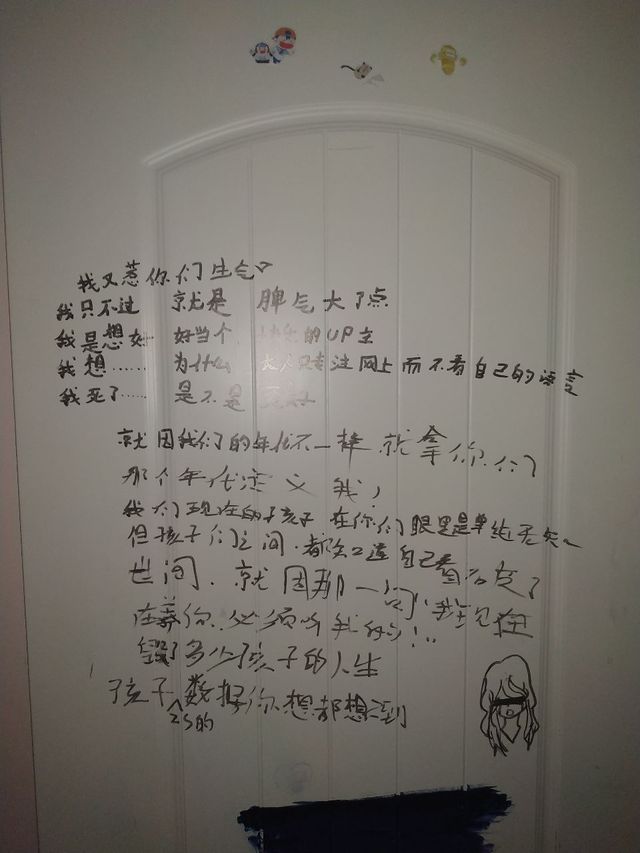 我又惹你们生气
我只不过 就是 脾气大了点
我是想好 好当个 快乐的UP主
我想…… 为什么 大人只专注网上而不看自己的语言
我死了…… 是不是
就因我们的年代不一样就拿你们
那个年代定义我,
我们现在的孩子在你们眼里是单纯无知
但孩子们之间.都知道自己看
世间.就因那一句
在养你.必须听我的!..
毁了多少孩子的人生
孩子数据你想都想不到
的